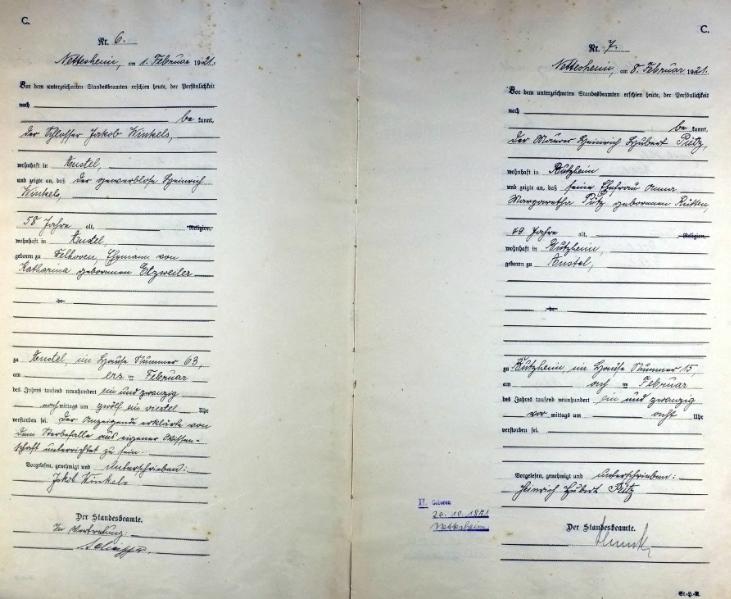 C.
Nr. 6.
Nettesheim, am 1. Februar 1921.
Vor dem unterzeichneten Standesbeamten erschien heute, der Persönlichkeit
nach
be kannt,
der Schlosser Jakob Winkels,
wohnhaft in Anstel,
und zeigte an, daß der gewerblose Heinrich
Winkels,
58 Jahre alt, Religion,
wohnhaft in Anstel,
geboren zu Ehemann von
Katharina geborenen
zu Anstel, im Hause Nummer 63,
am ersten Februar
des Jahres tausend neunhundert ein und zwanzig
mittags um zwölf ein viertel Uhr
verstorben sei. Der Anzeigende erklärte von
dem Sterbefalle aus eigener Wissen-
schaft unterrichtet zu sein.
Vorgelesen, genehmigt und unterschrieben:
Jakob Winkels
Der Standesbeamte.
In Vertretung.
C.
Nr. 7.
Nettesheim, am 8. Februar 1921.
Vor dem unterzeichneten Standesbeamten erschien heute, der Persönlichkeit
nach
be kannt,
der Heinrich Hubert Pütz,
wohnhaft in Butzheim
und zeigte an, daß seine Ehefrau Anna
Margaretha Pütz geborenen
49 Jahre alt, Religion,
wohnhaft in Butzheim,
geboren zu Anstel,
zu Butzheim im Hause Nummer 15,
am Februar
des Jahres tausend neunhundert ein und zwanzig
vor mittags um acht Uhr
verstorben sei.
Vorgelesen, genehmigt und unterschrieben:
Heinrich Hubert Pütz
Der Standesbeamte.